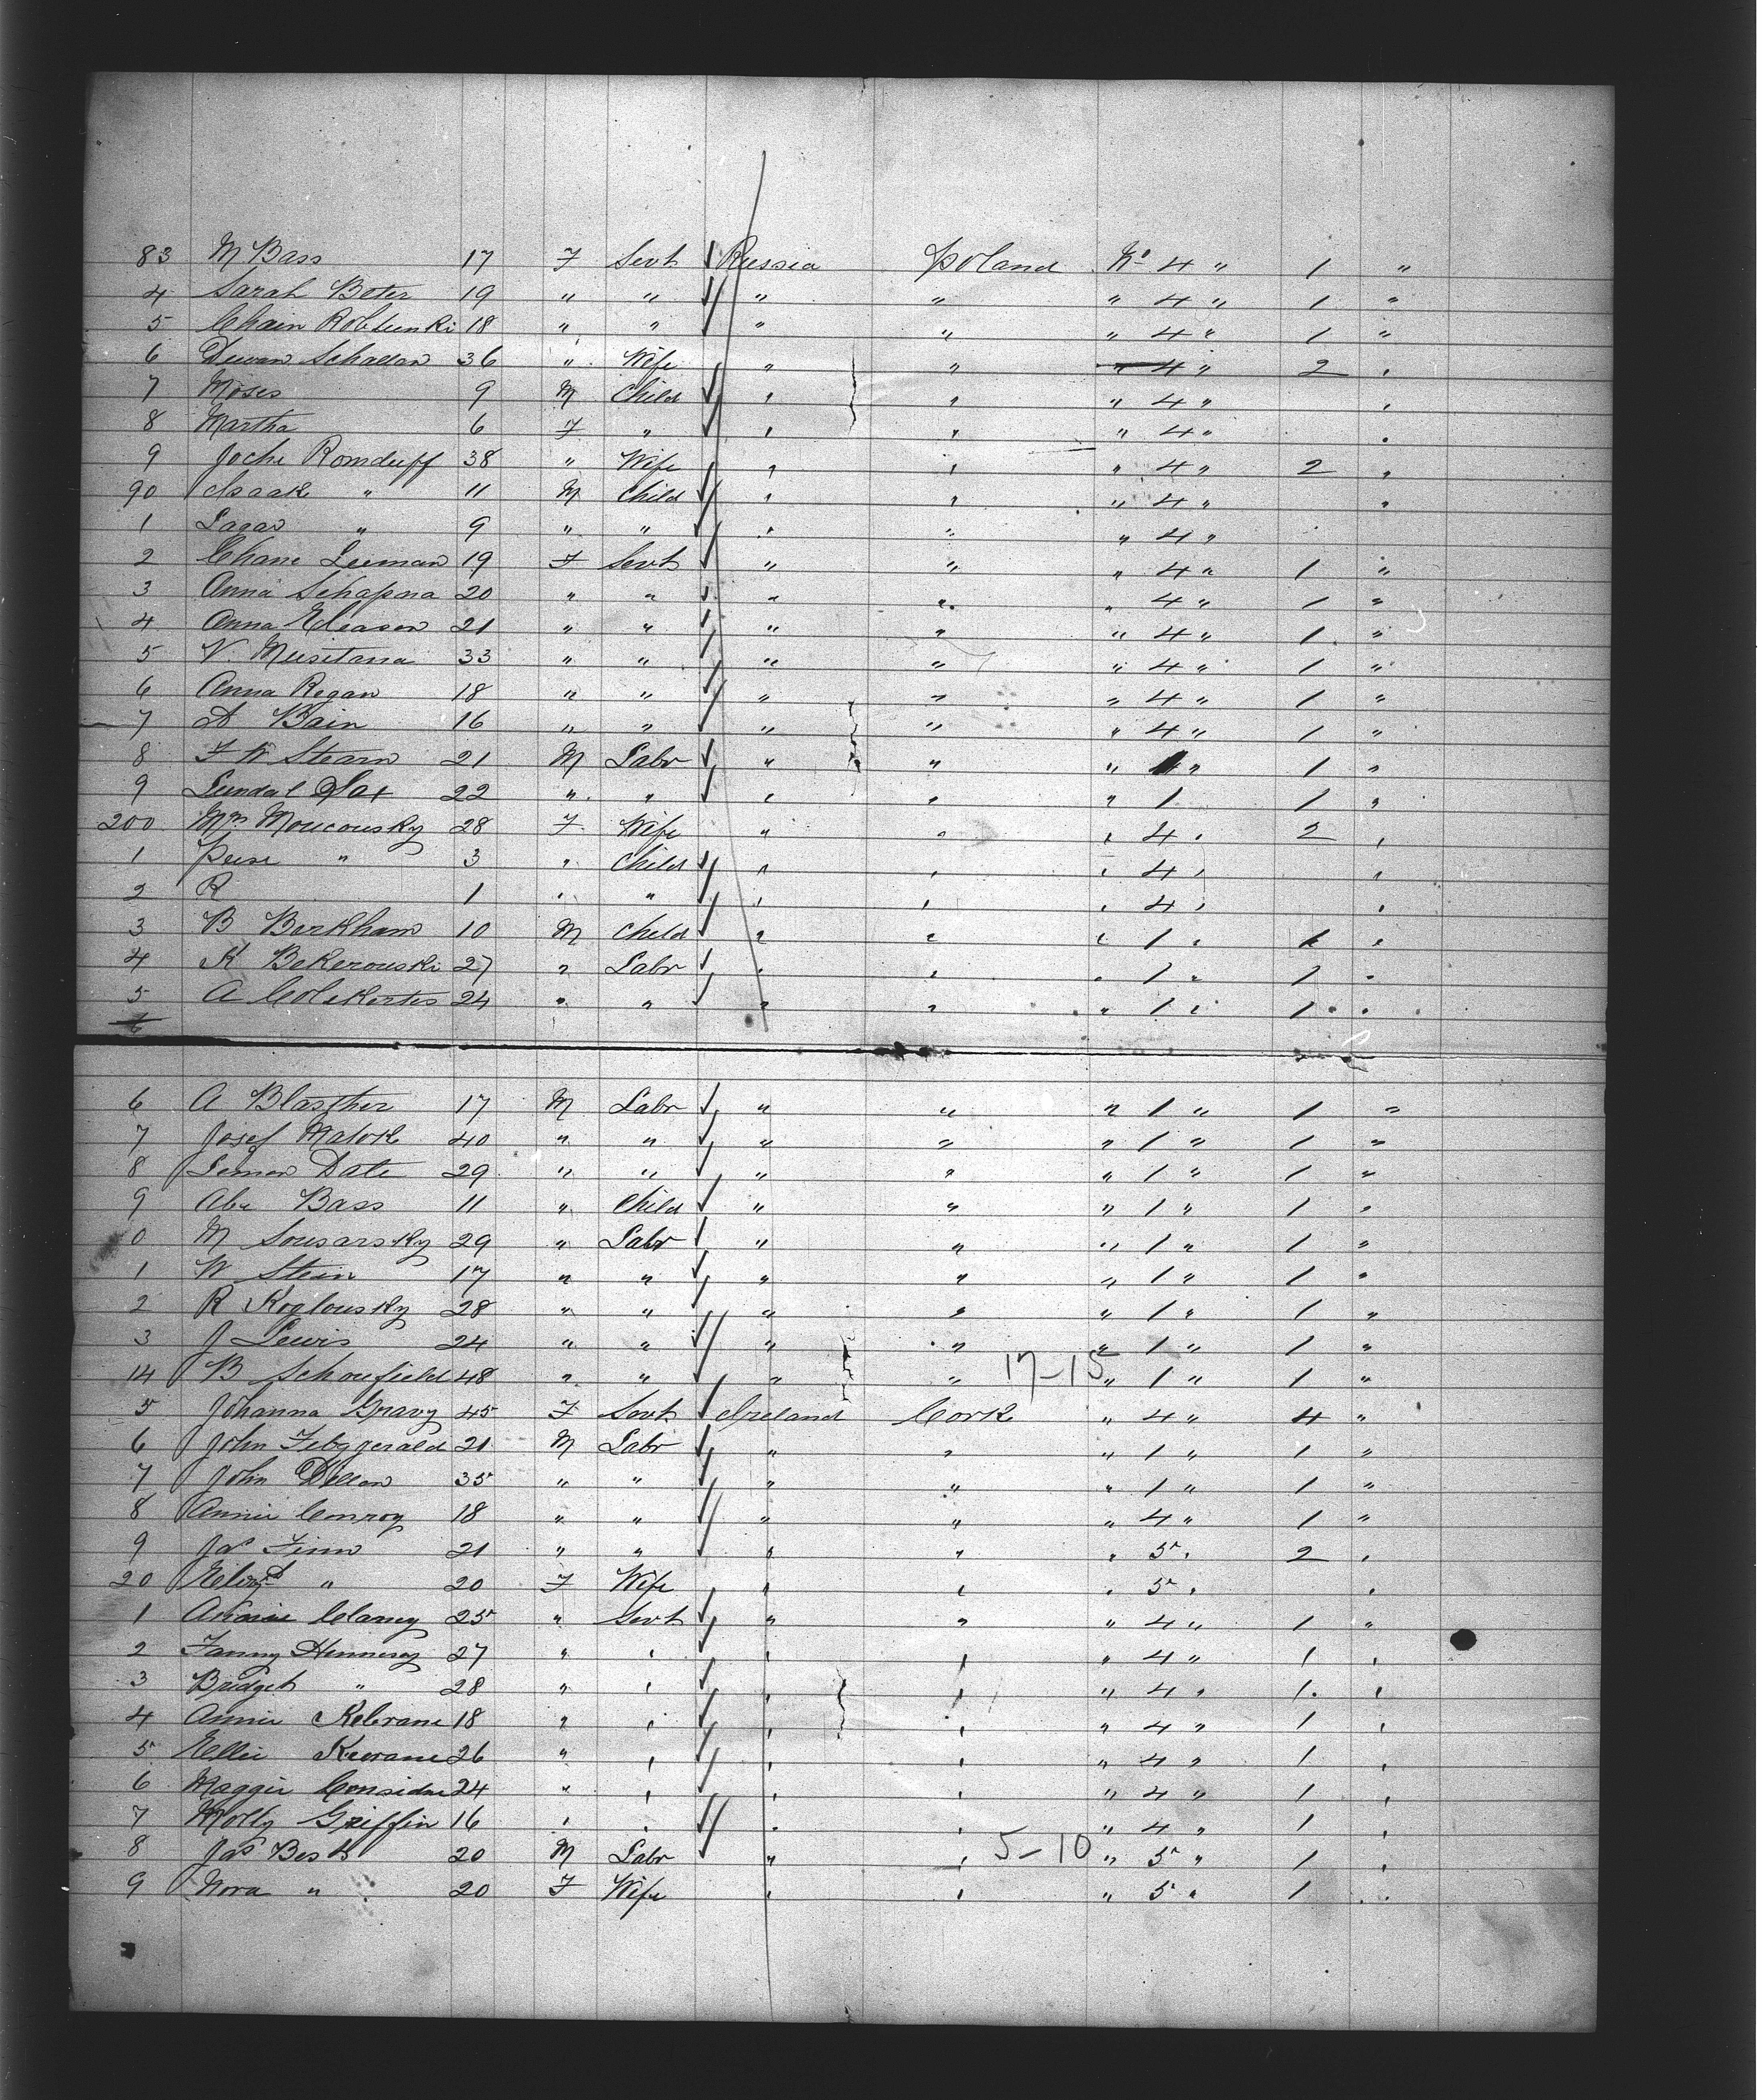 83 M Bass 17 F Servt Russia Poland No 4 " 1 "
4 Sarah Beter 19 " " " " " 4 " 1 "
5 Chain Robtunki 18 " " " " " 4 " 1 "
6 Schallan 36 " Wife " " " 4 " 2 "
7 Moses 9 M Child " " " 4 " "
8 Martha 6 F " " " " 4 " "
9 Joche Romduff 38 " Wife " " " 4 " 2 "
90 Isaak " 11 M Child " " " 4 " "
1 Lagar " 9 " " " " " 4 "
2 Chane Leeman 19 F Servt " " " 4 " 1 "
3 Anna Schapera 20 " " " " " 4 " 1 "
4 Anna Eleason 21 " " " " " 4 " 1 "
5 V. Musitana 33 " " " " " 4 " 1 "
6 Anna Regan 18 " " " " " 4 " 1 "
7 A Bain 16 " " " " " 4 " 1 "
8 F W Stearn 21 M Labr " " " 1 " 1 "
9 Lundal 22 " " " " " 1 1 "
200 Mrs Moucousky 28 F Wife " " " 4 " 2 "
1 Peise " 3 " Child " " " 4 " "
2 R 1 " " " " " 4 " "
3 B Berkham 10 M Child " " " 1 " 1 "
4 K Bekerouski 27 " Labr " " " 1 " 1 "
5 A Colekertes 24 " " " " " 1 " 1 "
6
6 A Blascher 17 M Labr " " " 1 " 1 "
7 Josef Malok 40 " " " " " 1 " 1 "
8 Lemen Date 29 " " " " " 1 " 1 "
9 Abe Bass 11 " Child " " " 1 " 1 "
0 M Sousarsky 29 " Labr " " " 1 " 1 "
1 W Stein 17 " " " " " 1 " 1 "
2 R Koglousky 28 " " " " " 1 " 1 "
3 J Lewis 24 " " " " " 1 " 1 "
14 B Schoufield 48 " " " " 17-15 " 1 " 1 "
5 Johanna Gravy 45 F Servt Ireland Cork " 4 " 4 "
6 John Febggerald 21 M Labr " " " 1 " 1 "
7 John Dillon 35 " " " " " 1 " 1 "
8 Annie Conroy 18 " " " " " 4 " 1 "
9 Jas Finn 21 " " " " " 5 " 2 "
20 Elizbt " 20 F Wife " " " 5 " "
1 Annie Clancy 25 " Servt " " " 4 " 1 "
2 Fanny Hennesy 27 " " " " " 4 " 1 "
3 Bridget " 28 " " " " " 4 " 1 "
4 Annie Kelerane 18 " " " " " 4 " 1 "
5 Ellie Kewrane 26 " " " " " 4 " 1 "
6 Maggie Considne 24 " " " " " 4 " 1 "
7 Molly Griffin 16 " " " " " 4 " 1 "
8 Jas Besh 20 M Labr " " 5-10 " 5 " 1 "
9 Nora " 20 F Wife " " " 5 " 1 "